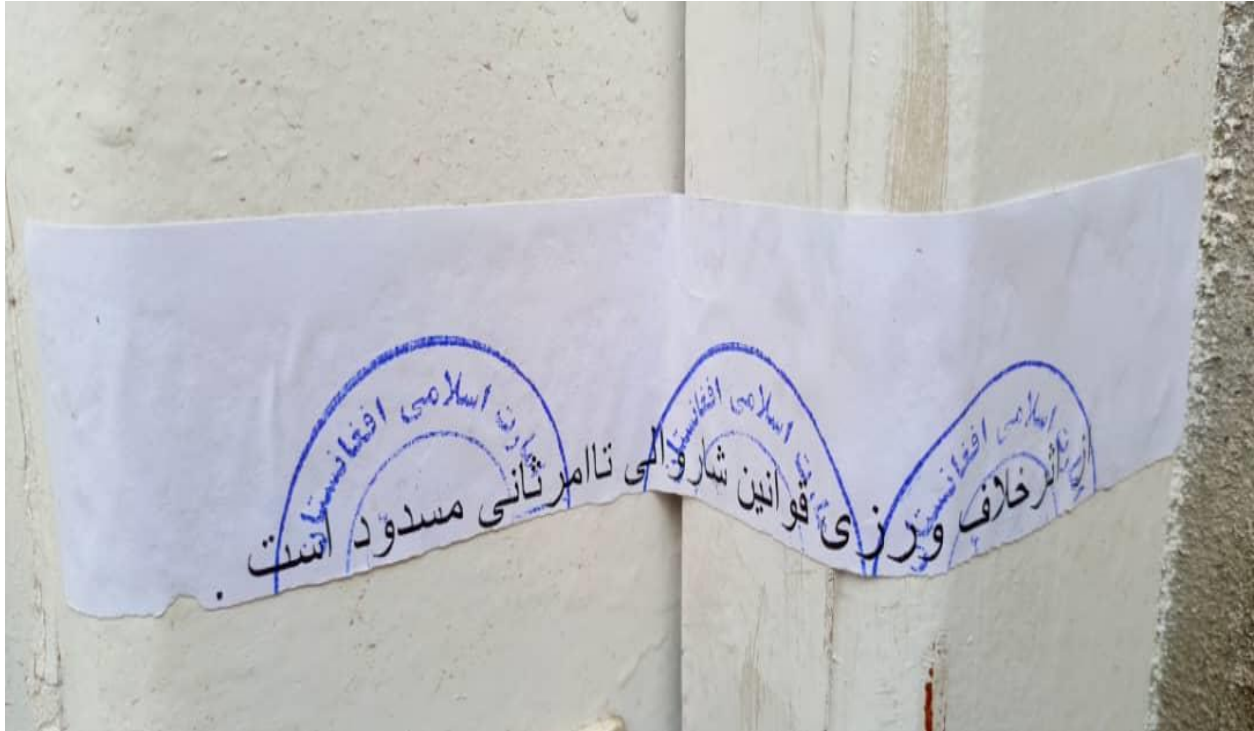 امارت اسلامی افغانستان
امارت اسلامی افغانستان
امارت اسلامی افغانستان
از اثر خلاف ورزی قوانین شاروالی تا امر ثانی مسدود است .